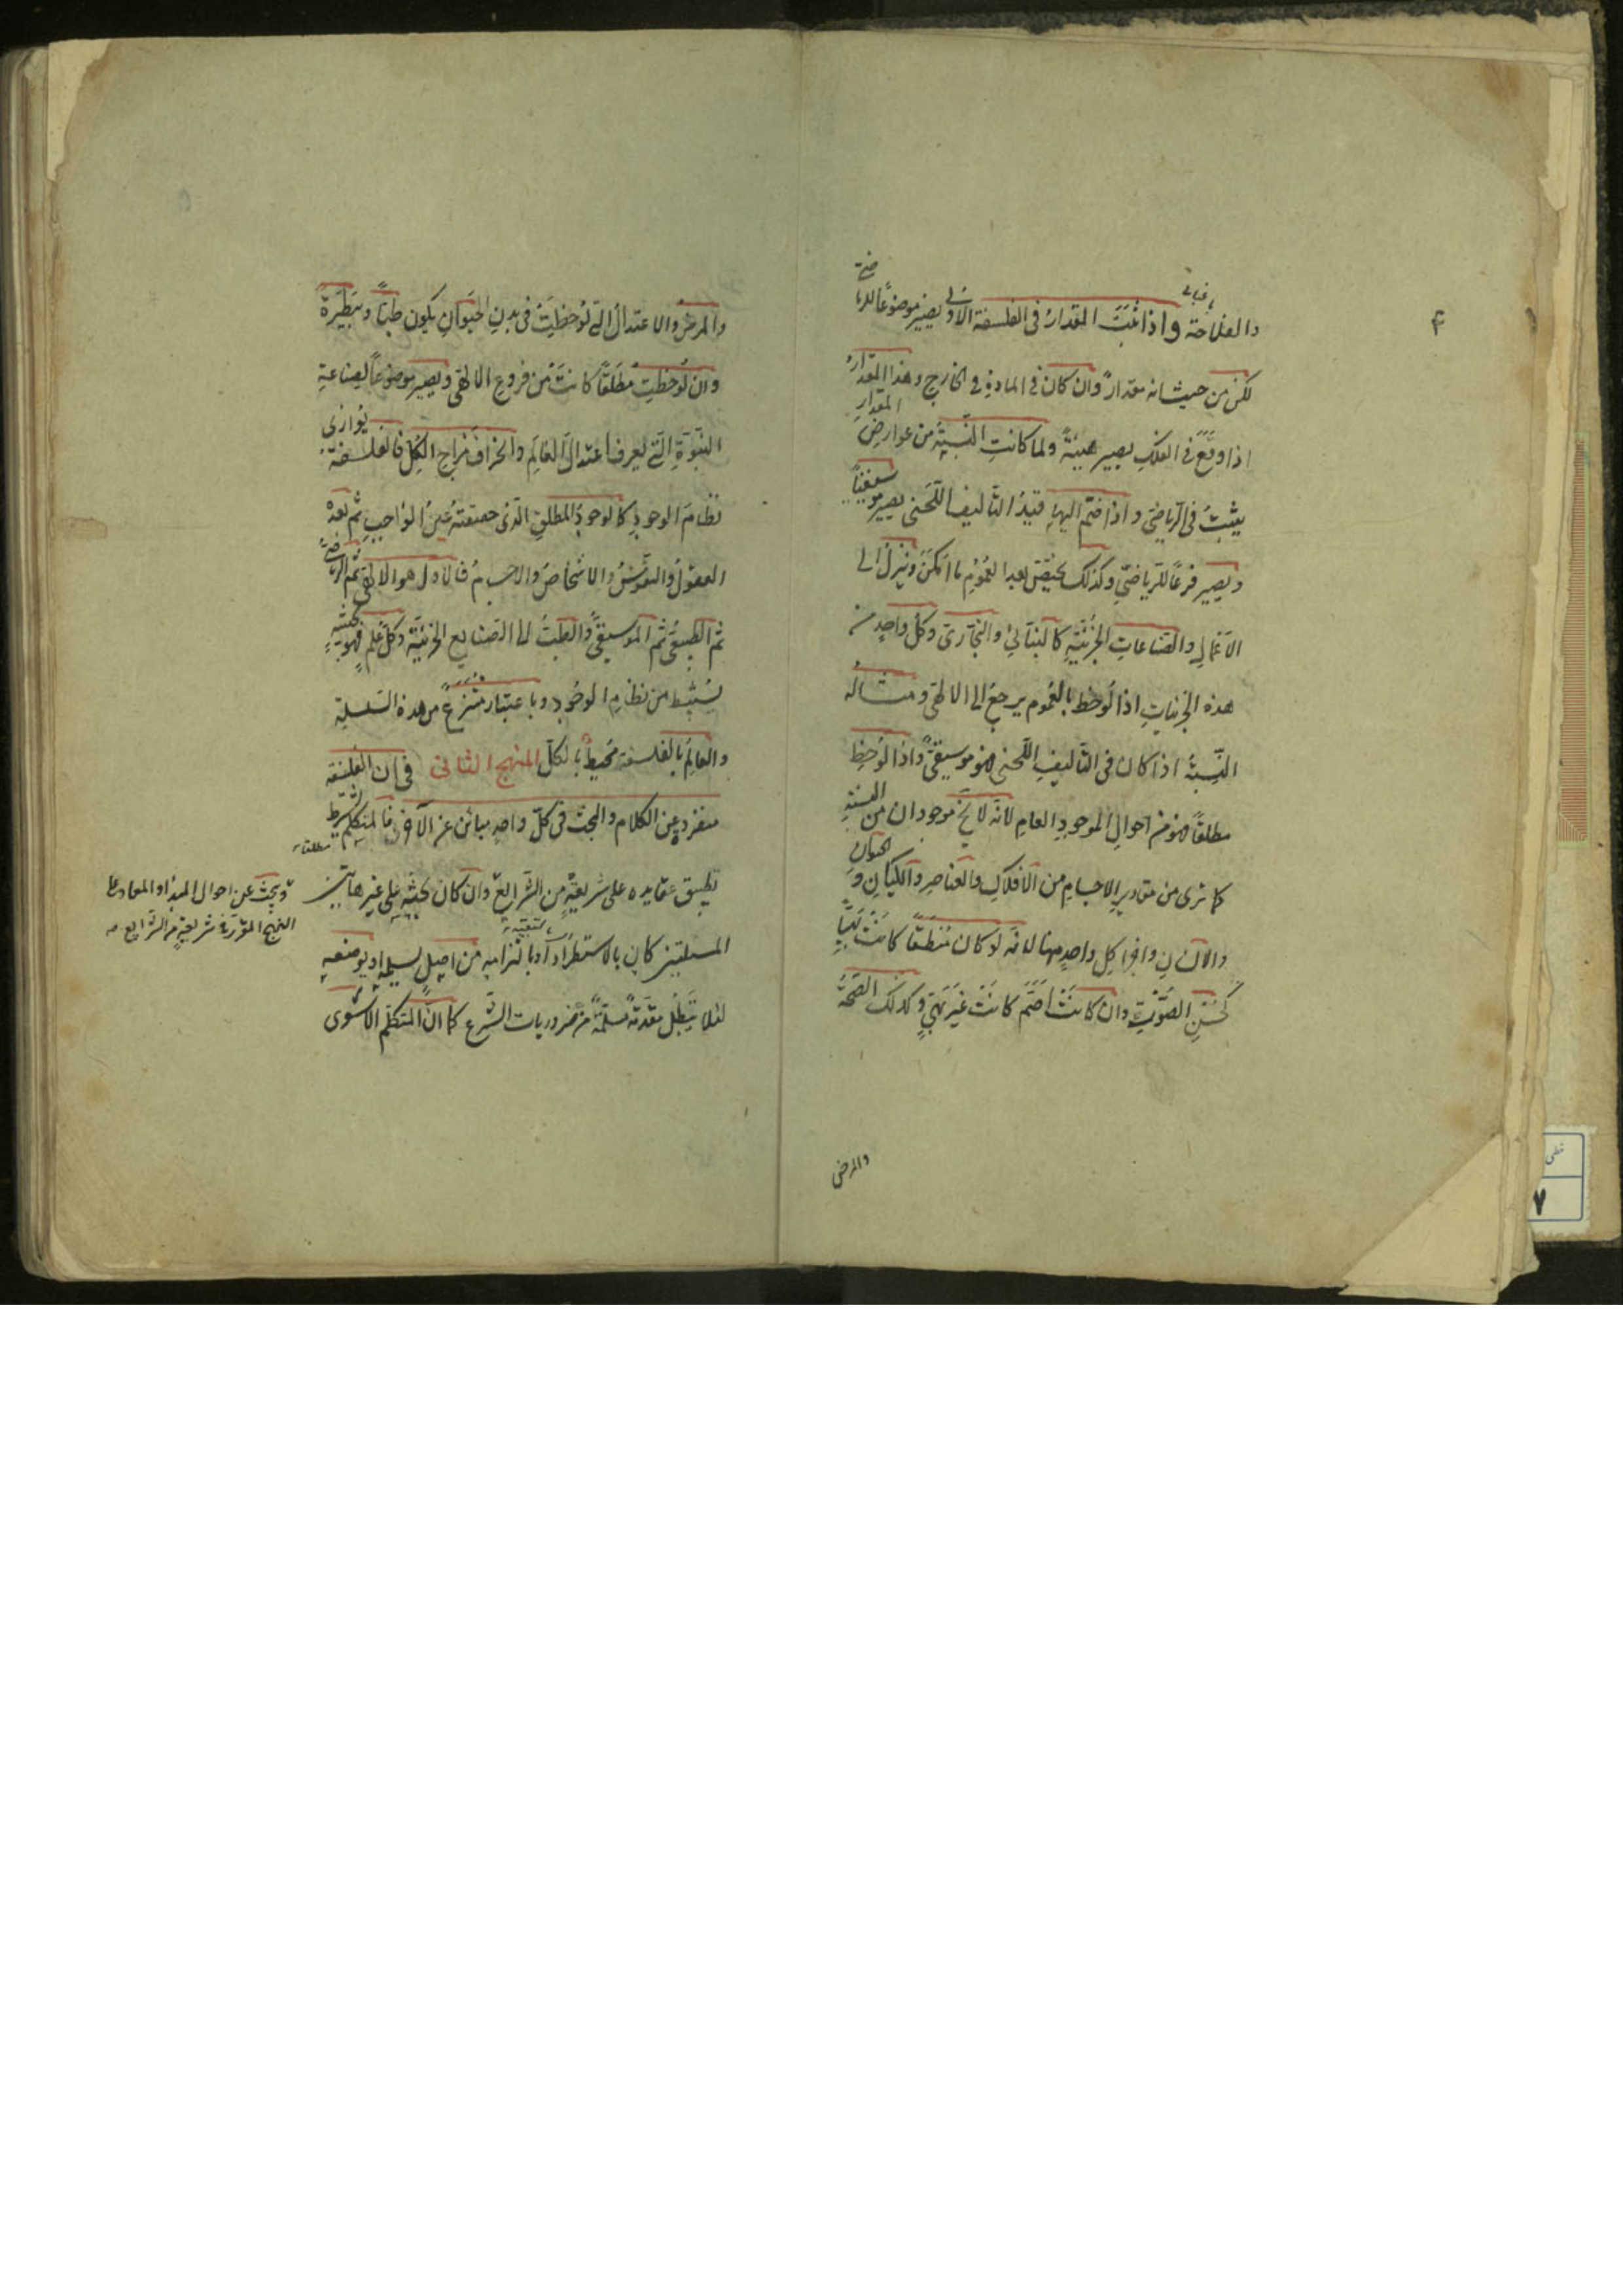 والفلاحة واذا ثبت المقدار فى الفلسفة الاولى يصير موضوعًا للريا
ضة
لكن من حيث انه مقدار وان كان فى المادة فى الخارج وهذا المقدار
اذا وقع فى الفلك يصير هيئة ولما كانت النسبة من عوارض المقدار
يثبت فى الرياضى واذا ضم اليها قيد التاليف اللحنى يصير موسيقيا
ويصير فرعًا للرياضى وكذلك يختص بعد العموم ما امكن وينزل الى
الاعمال والصناعات الجزئية كالبنائى والنجارى وكل واحد من
هذه الجزئيات اذا لوحظ بالعموم يرجع الى الالهى ومثاله
النسبة اذا كان فى التاليف اللحنى فهو موسيقى واذا لوحظ
مطلقًا فهو من احوال الموجود العام لانه لا يخ موجودان من النسبة
كما ترى من مقادير الاجسام من الافلاك والعناصر والكيان والحيوان
والانسان واجزا كل واحد منها لانه لو كان منطقًا كانت بهيا
كحسن الصوت وان كانت اصم كانت غير بهى وكذلك الصحة
والمرض
والمرض والاعتدال التى لوحظت فى بدن الحيوان يكون طبًا وبيطرة
وان لوحظت مطلقًا كانت من فروع الالهى ويصير موضوعًا لصناعة
النبوة التى يعرف اعتدال العالم وانحراف مزاج الكل فالفلسفة يوازى
نظام الوجود كالوجود المطلق الذى حقيقته عين الواجب ثم بعده
العقول والنفوس والاشخاص والاجسام فالاول هو الالهى ثم الرياضى
ثم الطبيعى ثم الموسيقى والطب الى الصنايع الجزئية وكل علم فهو بحيثية
يستنبط من نظام الوجود وباعتبار منتزع من هذه السلسلة
والعالم بالفلسفة محيط بالكل المنهج الثانى فى ان الفلسفة
منفرد عن الكلام والبحث فى كل واحد مبائن عن الآخر فالمتكلم يشترط
تطبيق عقايده على شريعة من الشرايع وان كان بحثه على غير هاتين
مطلقا
ويبحث عن احوال المبدا والمعاد على
النهج المقرر فى شريعة من الشرايع صح
المسئلتين كان بالاستطراد او بالتزامه من اصل يسلمه او يوضعه
لئلا يبطل مقدمة مسلمة من ضروريات الشرع كما ان المتكلم الاشعرى